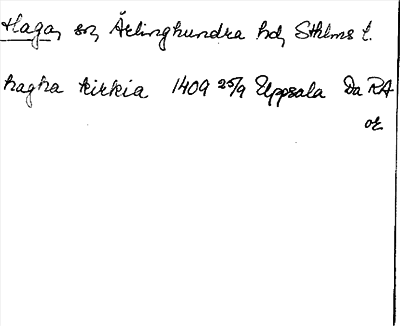 Haga, sn, Ärlinghundra hd, Sthlms l.
hagha kirkia 1409 25/9 Uppsala Da RA
or